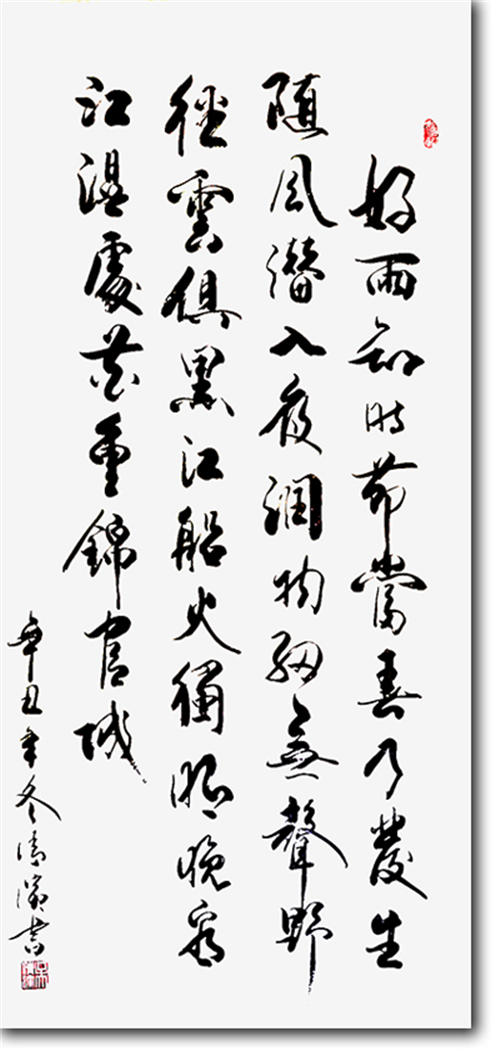 好雨知時節當春乃發生
随風潛入夜潤物細無聲野
徑雲俱黑江船火獨明晚看
江湿處花重錦官城
辛丑年冬清濱書